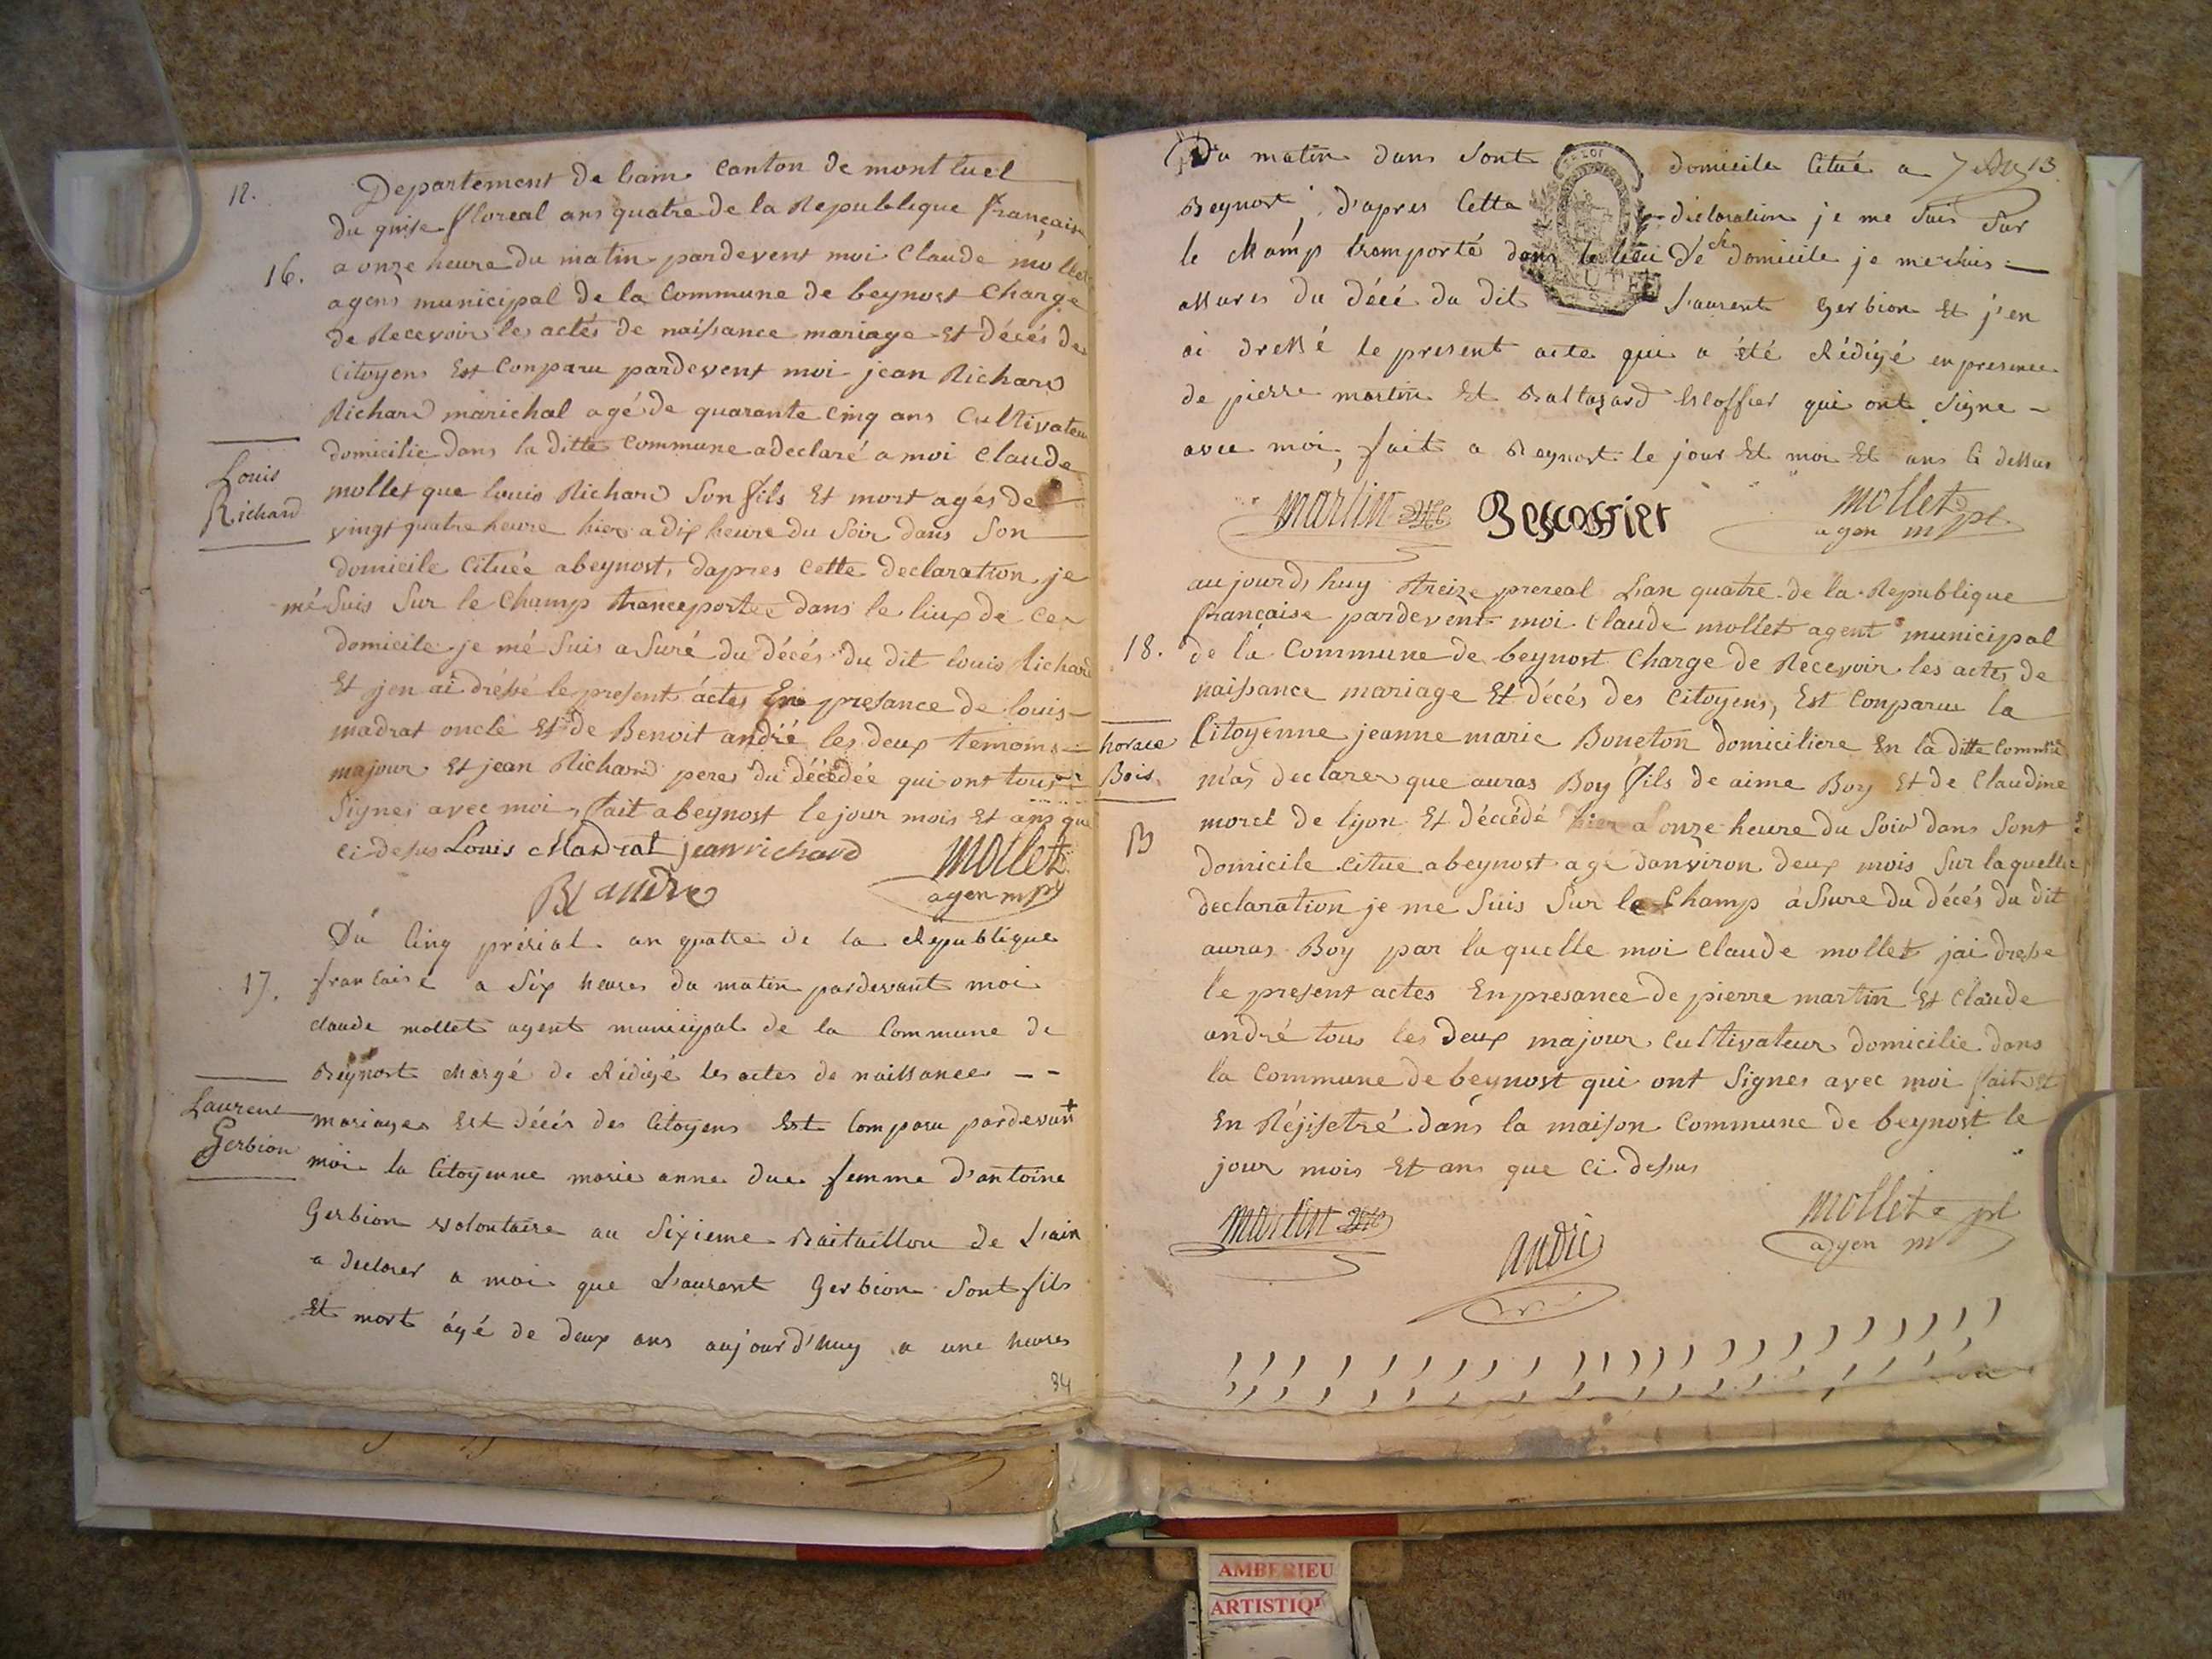 12.
Departement de Lain Canton de mont luel
du quise floreal ans quatre de la Republique française
16.
a onze heure du matin pardevent moi Claude mollet
agens municipal de la Commune de beynost Charge
de Recevoir les actés de naissance mariage et décés de
Citoyens Est Conparu pardevent moi jean Richard
Richard marichal agé de quarante cinq ans Cultivateur
domicilie dans la ditte Commune a declaré a moi Claude
Louis
Richard
mollet que louis Richard Son fils Et mort agés de
vingt quatre heure hier a dix heure du Soir dans Son
domicile Cituée a beynost, dapres cette declaration je
mé Suis Sur le Champ tranceportée dans le liux de ce
domicile je mé Suis a Suré du décés du dit louis Richard
Et jen ai dréssé le present áctes En presance de louis
madrat oncle Et de Benoit andré les deux temoins
majour Et jean Richard pere du décédée qui ont tous
Signes avec moi, fait a beynost le jour mois Et ans que
Ci desus Louis Madrat jean richard
Mollet
B andre
agen mpl
Du Cinq prérial an quatre de la Republique
17.
francaise a Six heures du matin pardevant moi
claude mollet agent municipal de la Commune de
Beynost chargé de Rédigé les actes de naissance - -
Laurent
Gerbion
mariages Est décés des Citoyens Est Comparu pardevant
moi la Citoyenne marie anne duc femme d'antoine
Gerbion volontaire au Sixieme Bataillon de L'ain
a declarer a moi que Laurent Gerbion Sont fils
Et mort ágé de deux ans aujourd'huy a une heures
34
Du matin dans Sont domicile Citué a
Beynost; d'apres Cette dicloration je me Suis Sur
le champ tromporté dans le lieu de ce domicile je me Suis
assures du décé du dit Laurent Gerbion Et j'en
ai dressé le present acte qui a été Rédigé en presence
de pierre martin Et Baltazard Escoffier qui ont Signe -
avec moi, fait a Beynost le jour Et moi Et ans Ci dessus
martin
B escoffier
Mollet
agen mpl
aujourds huy treize prereal Lan quatre de la Republique
française pardevent moi Claude mollet agent municipal
18.
de la Commune de beynost Charge de Recevoir les actes de
naissance mariage Et décés des Citoyens, Est Conparue la
horace
Bois
B
Citoyenne jeanne marie Boneton domiciliere En la ditte Commune
m'as declarer que auras Boy fils de aime Boy Et de Claudine
morel de lyon Et décédé hier a onze heure du Soir dans Sont
domicile citue a beynost agé danviron deux mois Sur laquelle
declaration je me Suis Sur le Champ áSsure du décés du dit
auras Boy par laquelle moi Claude mollet jai dresse
le present actes En presance de pierre martin Et Claude
andré tous les deux majour Cultivateur domicilie dans
la Commune de beynost qui ont Signes avec moi fait Et
En Réjisetré dans la maison Commune de beynost le
jour mois Et ans que Ci desus
martin
andre
Mollet
agen mpl
AMBERIEU
ARTISTIQ